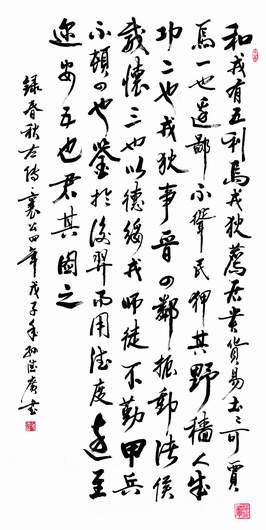 和戎有五利焉戎狄薦居貴貨易土〻可賈
焉一也邊鄙不聳民狎其野穡人成
功二也戎狄事晉四鄰振動諸侯
威懷三也以德綏戎師徒不勤甲兵
不頓四也鑒於後羿而用德度遠至
邇安五也君其圖之
錄春秋左傳襄公四年戊子年孫德書